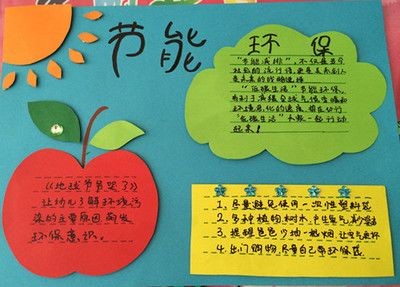 节能
环保
"节能减排",不仅是当今
社会的流行语,更是关系到人
类未来的战略选择
"低碳生活"节能环保,
有利于减缓全球气候变暖和
环境恶化的速度,势在必行
"低碳生活"大家一起行动
起来!
《地球爷爷哭了》
让幼儿了解环境污
染的主要原因,萌发
环保意识。
1、尽量避免使用一次性塑料袋
2、多种植物树木,产生氧气,
3、提醒爸爸少抽一起烟,让空气更好
4、出门购物,尽量自己带环保袋